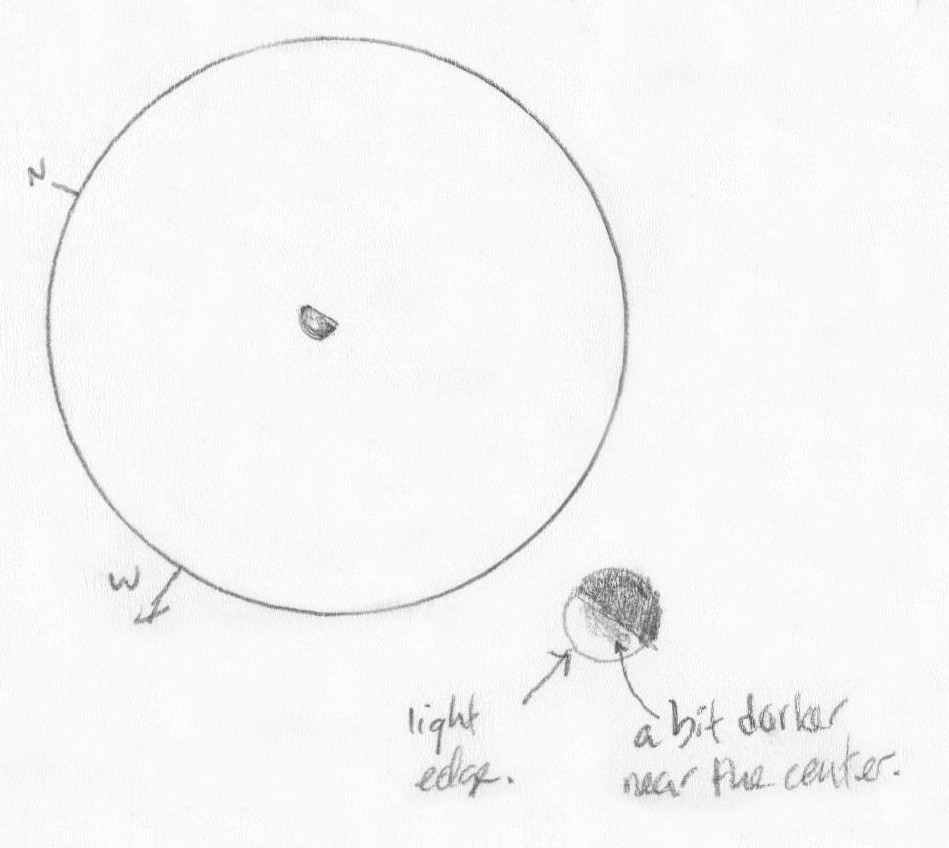 N
W
light
edge.
a bit darker
near the center.